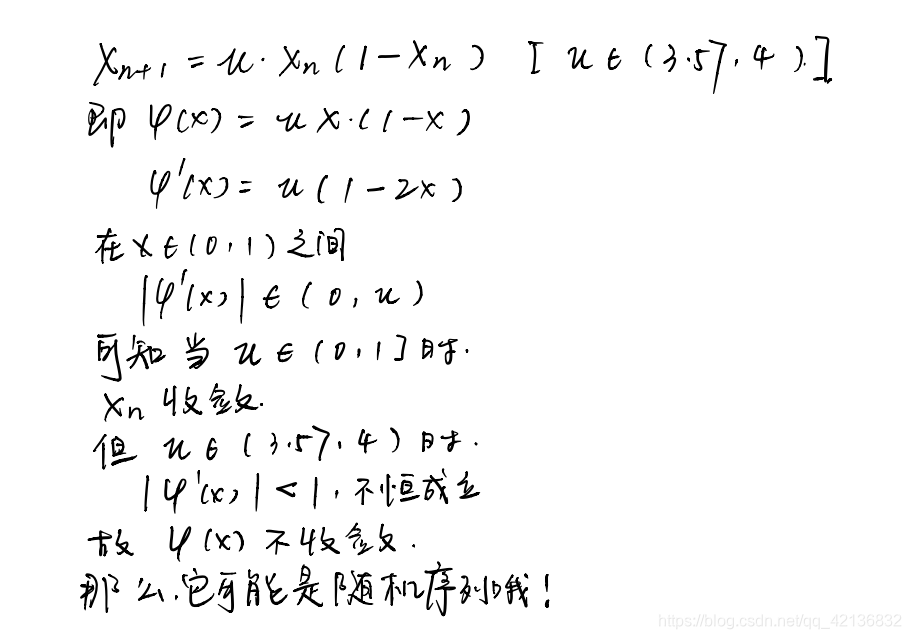 Xn+1 = u·Xn(1-Xn) [u∈(3.57,4).]
即 φ(x) = ux·(1-x)
φ'(x) = u(1-2x)
在x∈(0,1)之间
|φ'(x)| ∈ (0,u)
可知当 u∈(0,1]时.
Xn 收敛.
但 u∈(3.57,4)时.
|φ'(x)|<1,不恒成立
故 φ(x) 不收敛.
那么,它可能是随机序列哦!
https://blog.csdn.net/qq_42136832